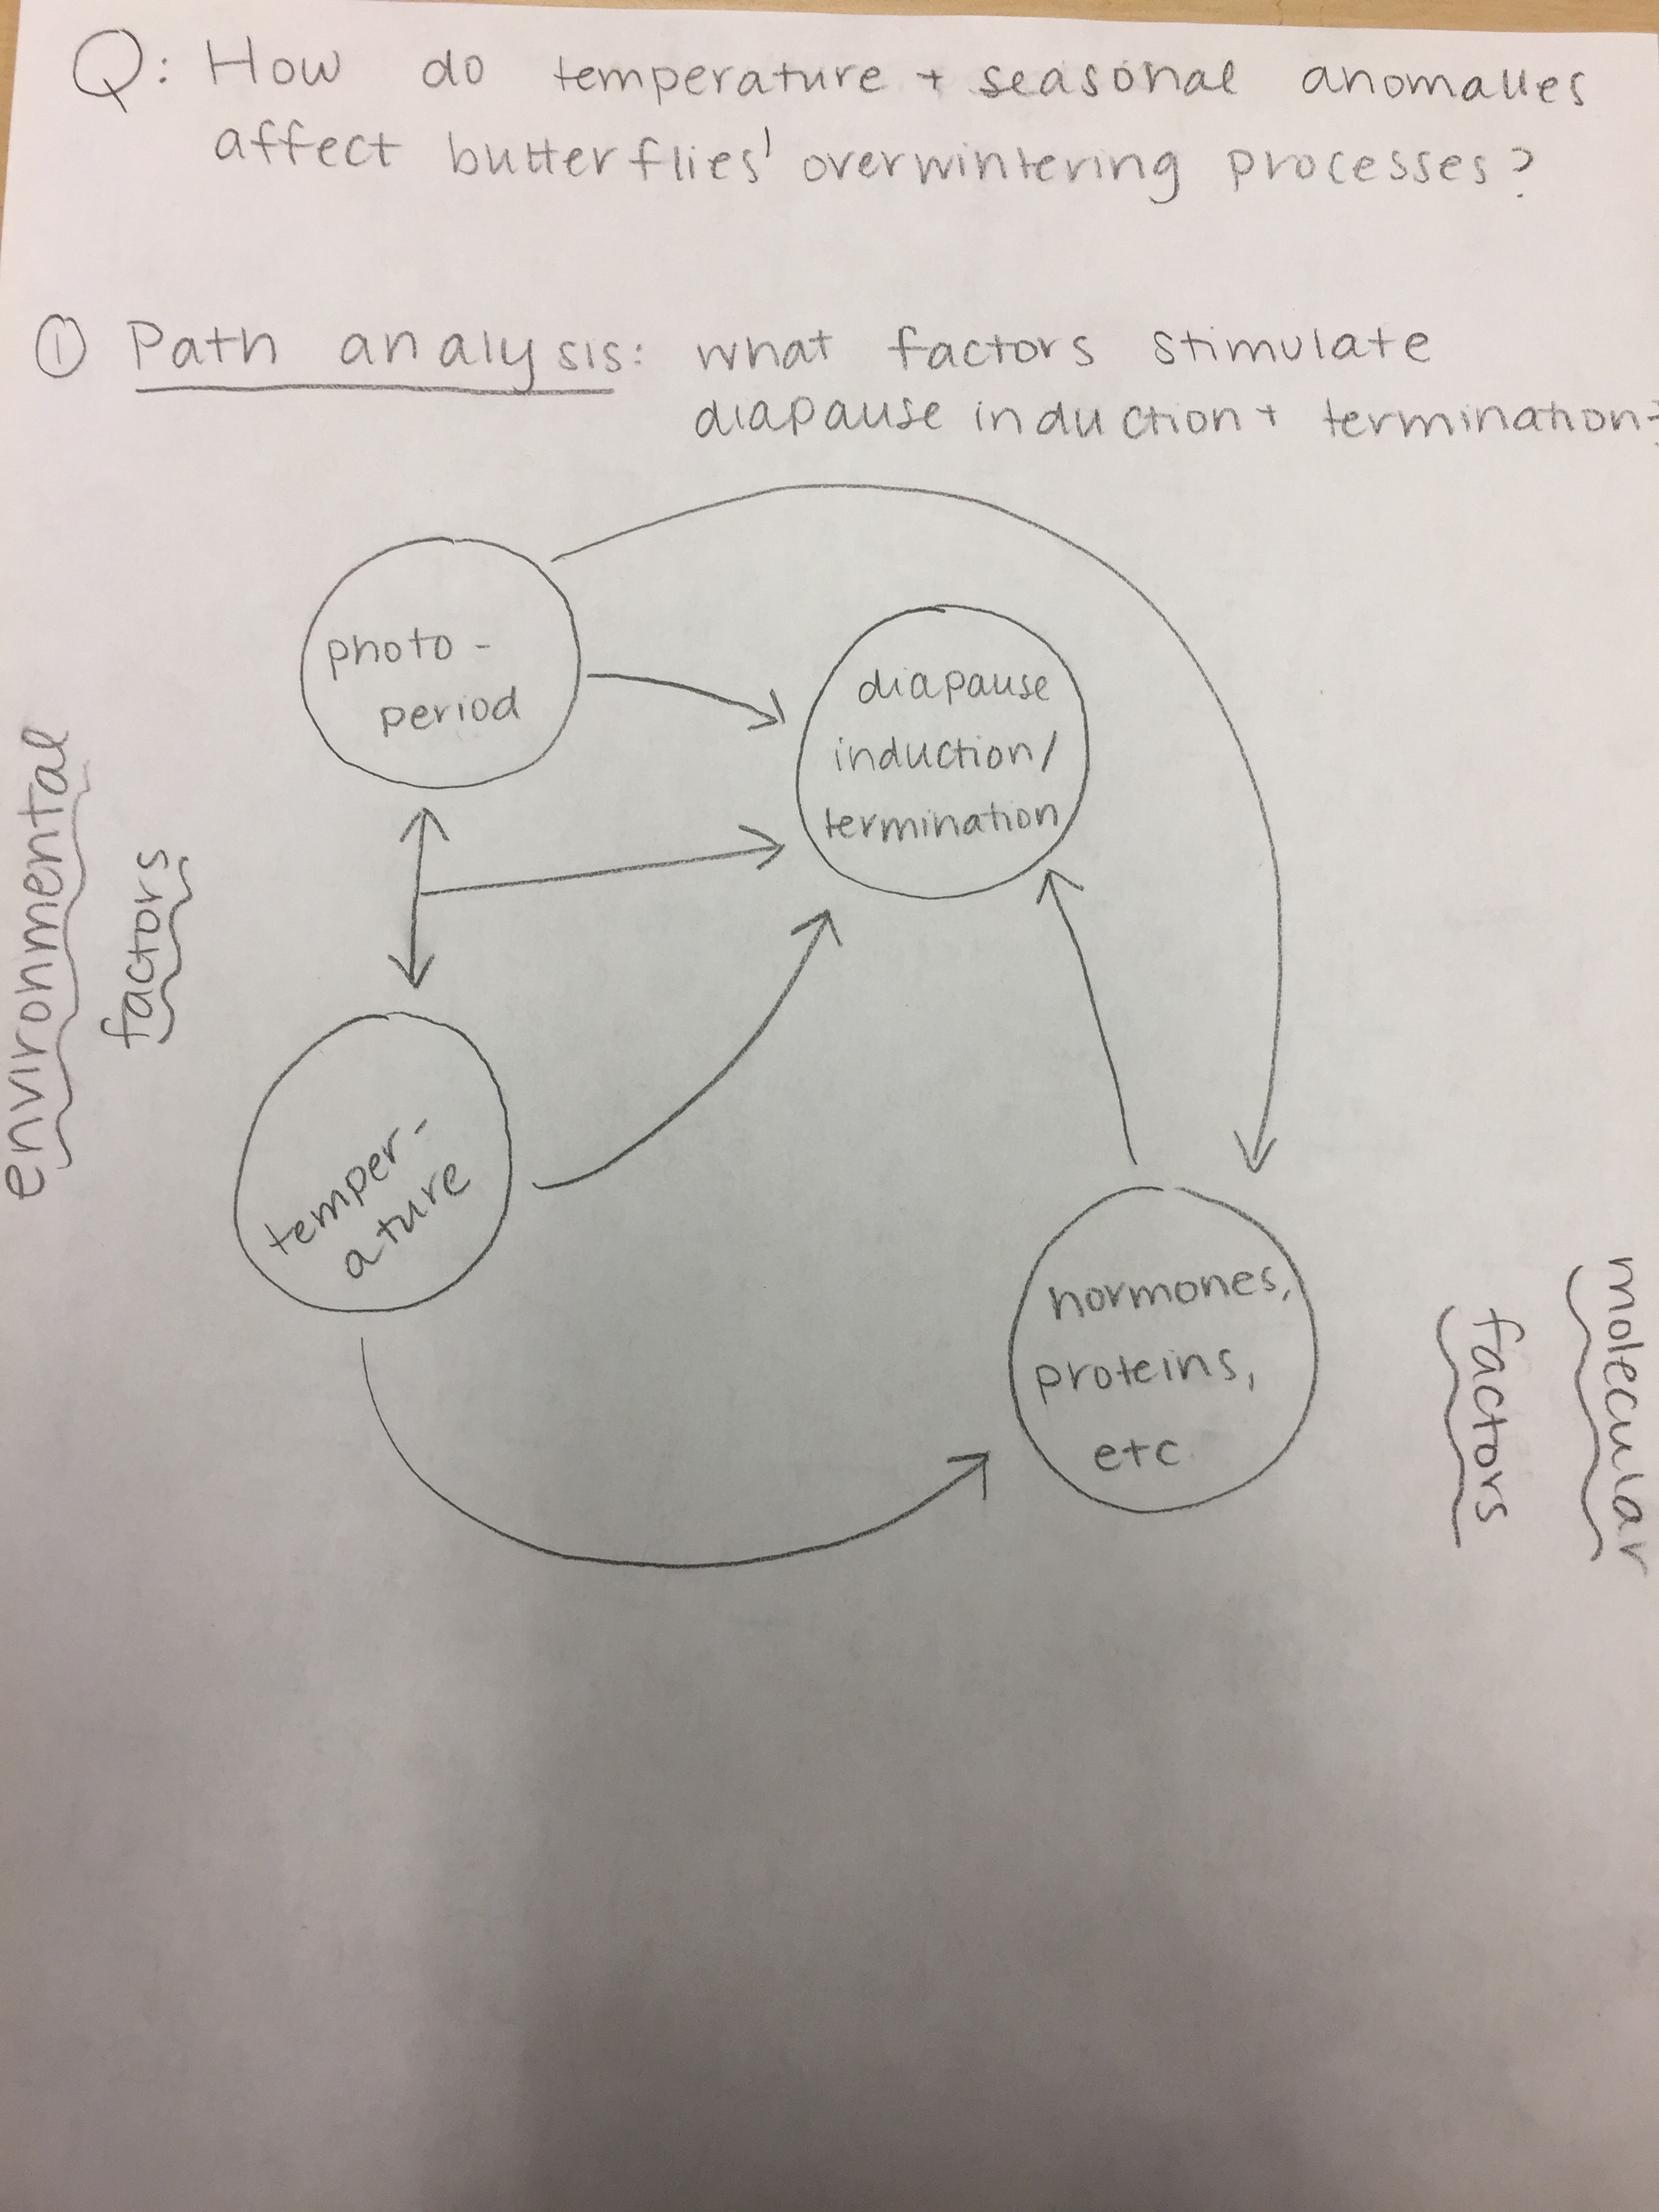 Q: How do temperature + seasonal anomalies
affect butterflies' overwintering processes?
① Path analysis: what factors stimulate
diapause induction + termination?
photo-
period
diapause
induction/
termination
environmental
factors
temper-
ature
hormones,
proteins,
etc.
molecular
factors